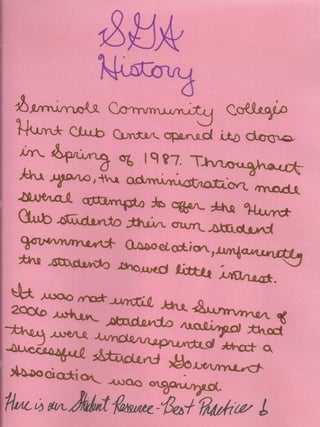 SGA
History
Seminole Community College's
Hunt Club Center opened its doors
in Spring of 1987. Throughout
the years, the administration made
several attempts to offer the Hunt
Club students their own student
government association, unfortunetly
the students showed little intrest.
It was not until the Summer of
2006 when students realized that
they were underreprented that a
successful Student Goverment
Association was organized.
Here is our Student Resource - Best Practice